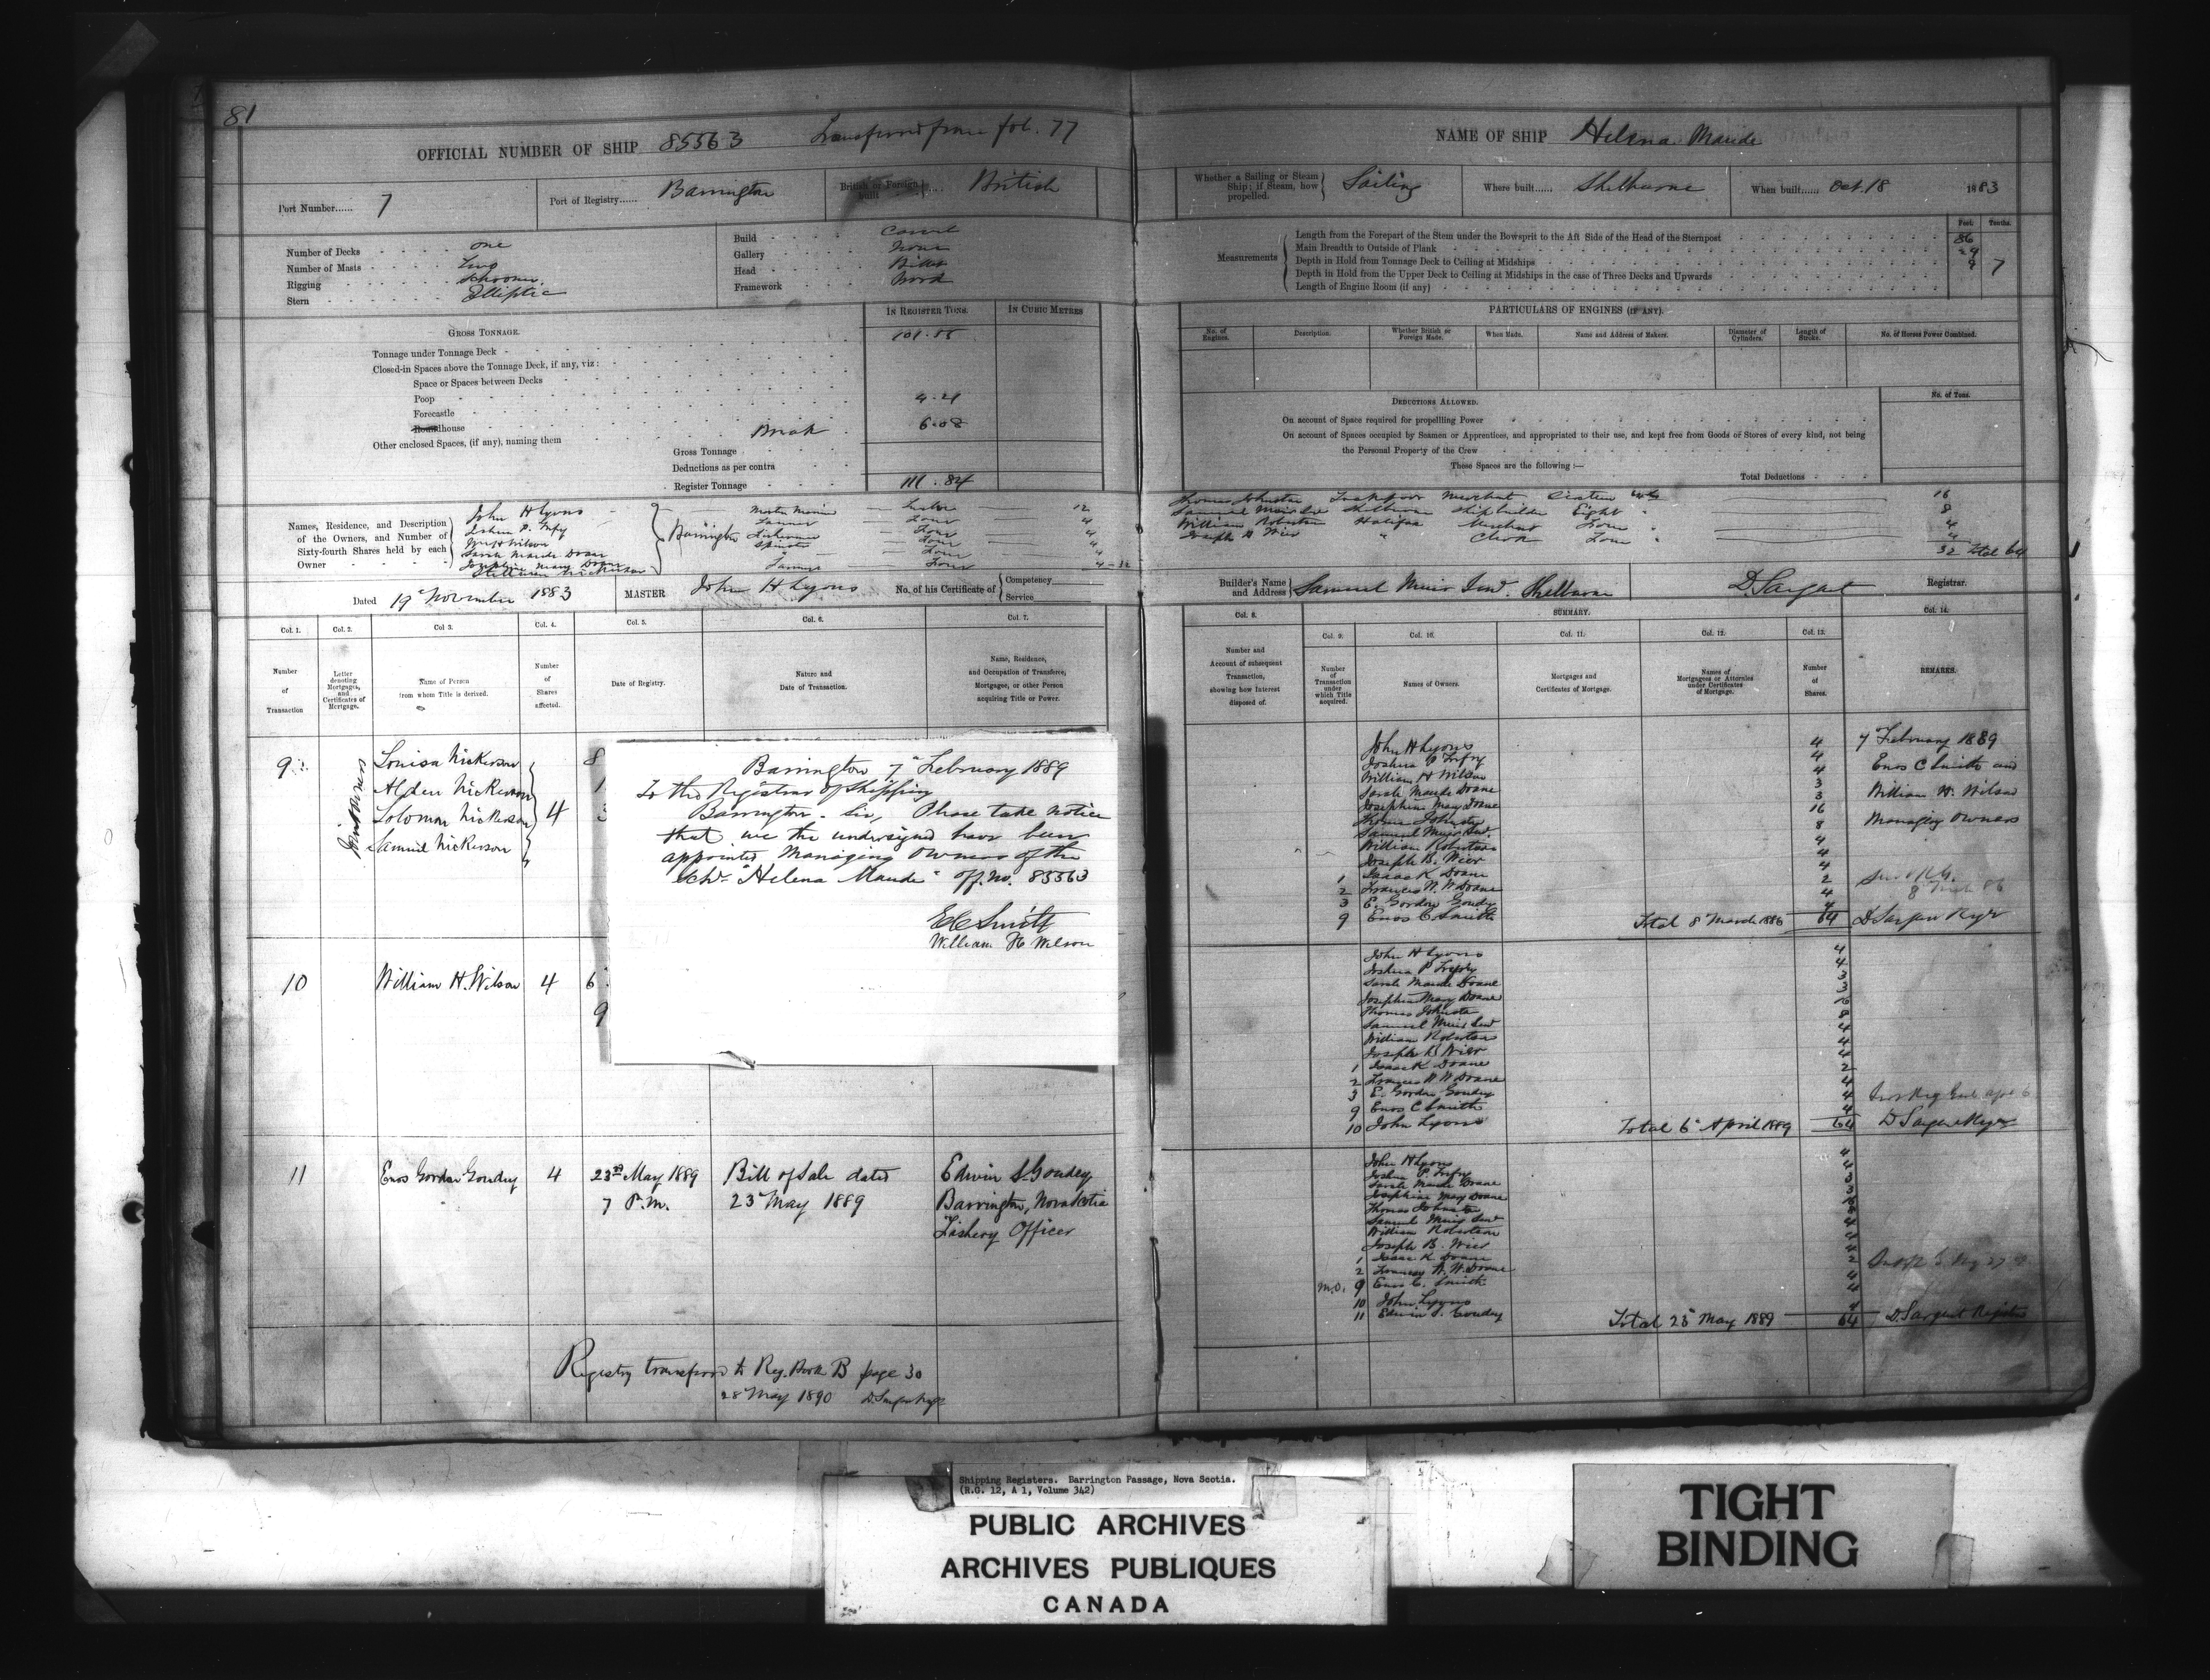 81
OFFICIAL NUMBER OF SHIP 85563 Transferred from fol. 77
Port Number...... 7
Port of Registry...... Barrington
British or Foreign built British
Number of Decks one
Number of Masts Two
Rigging Schooner
Stern Elliptic
Build Carvel
Gallery None
Head Billet
Framework Wood
IN REGISTER TONS.
IN CUBIC METRES
GROSS TONNAGE.
Tonnage under Tonnage Deck 101.55
Closed-in Spaces above the Tonnage Deck, if any, viz:
Space or Spaces between Decks
Poop 4.21
Forecastle
Roundhouse Break 6.08
Other enclosed Spaces, (if any), naming them
Gross Tonnage
Deductions as per contra
Register Tonnage 111.84
Names, Residence, and Description of the Owners, and Number of Sixty-fourth Shares held by each Owner
John H Lyons Master Mariner 12
Wm H Wilson Fisherman Four 4
Sarah Maude Doane Spinster Four 4
Josephine Mary Doane Four 4
Barrington
Dated 19th November 1883
MASTER John H Lyons
No. of his Certificate of Competency Service
Col. 1. Col. 2. Col 3. Col. 4. Col. 5. Col. 6. Col. 7.
Number of Transaction
Letter denoting Mortgages, and Certificates of Mortgage.
Name of Person from whom Title is derived.
Number of Shares affected.
Date of Registry.
Nature and Date of Transaction.
Name, Residence, and Occupation of Transferee, Mortgagee, or other Person acquiring Title or Power.
9 Louisa Nickerson
Alden Nickerson
Solomon Nickerson 4
Samuel Nickerson
Joint Owners
Barrington 7th February 1889
To the Registrar of Shipping
Barrington. Sir, Please take notice
that we the undersigned have been
appointed Managing Owners of the
Schr "Helena Maude" off. no. 85563
E C Smith
William H Wilson
10 William H. Wilson 4 6
9
11 Enos Gordon Goudey 4 23rd May 1889 Bill of Sale dated Edwin S Goudey
7 P.m. 23rd May 1889 Barrington, Nova Scotia
Fishery Officer
Registry transferred to Reg. Book B page 30
28th May 1890
NAME OF SHIP Helena Maude
Whether a Sailing or Steam Ship; if Steam, how propelled. Sailing
Where built...... Shelburne
When built...... Oct. 18 1883
Measurements
Feet. Tenths.
Length from the Forepart of the Stem under the Bowsprit to the Aft Side of the Head of the Sternpost 86
Main Breadth to Outside of Plank
Depth in Hold from Tonnage Deck to Ceiling at Midships 9 7
Depth in Hold from the Upper Deck to Ceiling at Midships in the case of Three Decks and Upwards
Length of Engine Room (if any)
PARTICULARS OF ENGINES (IF ANY).
No. of Engines. Description. Whether British or Foreign Made. When Made. Name and Address of Makers. Diameter of Cylinders. Length of Stroke. No. of Horses Power Combined.
DEDUCTIONS ALLOWED.
No. of Tons.
On account of Space required for propelling Power
On account of Spaces occupied by Seamen or Apprentices, and appropriated to their use, and kept free from Goods or Stores of every kind, not being
the Personal Property of the Crew
These Spaces are the following :—
Total Deductions
Thomas Johnston Lockeport Merchant Sixteen 16
Samuel Muir Snr Shelburne Shipbuilder Eight 8
William Robertson Halifax Merchant Four 4
Joseph B Wier " Clerk Four 4
32 total 64
Builder's Name and Address Samuel Muir Snr. Shelburne
D. Sargent Registrar.
Col. 8. SUMMARY. Col. 14.
Col. 9. Col. 10. Col. 11. Col. 12. Col. 13.
Number and Account of subsequent Transaction, showing how Interest disposed of.
Number of Transaction under which Title acquired.
Names of Owners.
Mortgages and Certificates of Mortgage.
Names of Mortgagees or Attornies under Certificates of Mortgage.
Number of Shares.
REMARKS.
John H Lyons 4 7th February 1889
Joshua P Trefry 4 Enos C Smith and
William H Wilson 4 William H. Wilson
Sarah Maude Doane 3 Managing Owners
Josephine Mary Doane 3
Thomas Johnston 16
Samuel Muir Snr. 8
William Robertson 4
Joseph B. Wier 4
1 Isaac K Doane 4
2 Frances W. W Doane 2
3 E. Gordon Goudey 4
9 Enos C Smith 4
Total 8th March 1886 64
John H Lyons 4
Joshua P Trefry 4
Sarah Maude Doane 3
Josephine Mary Doane 3
Thomas Johnston 16
Samuel Muir Snr 8
William Robertson 4
Joseph B Wier 4
1 Isaac K Doane 4
2 Frances W W Doane 2
3 E. Gordon Goudey 4
9 Enos C Smith 4
10 John Lyons 4
Total 6th April 1889 64
John H Lyons 4
Joshua P Trefry 4
Sarah Maude Doane 3
Josephine Mary Doane 3
Thomas Johnston
Samuel Muir Snr
William Robertson
Joseph B. Wier
1 Isaac K Doane
2 Frances W. W Doane 2
m.o. 9 Enos C. Smith 4
10 John Lyons 4
11 Edwin S. Goudey 4
Total 23rd May 1889 64 D. Sargent Registrar
Shipping Registers. Barrington Passage, Nova Scotia.
(R.G. 12, A 1, Volume 342)
PUBLIC ARCHIVES
ARCHIVES PUBLIQUES
CANADA
TIGHT
BINDING